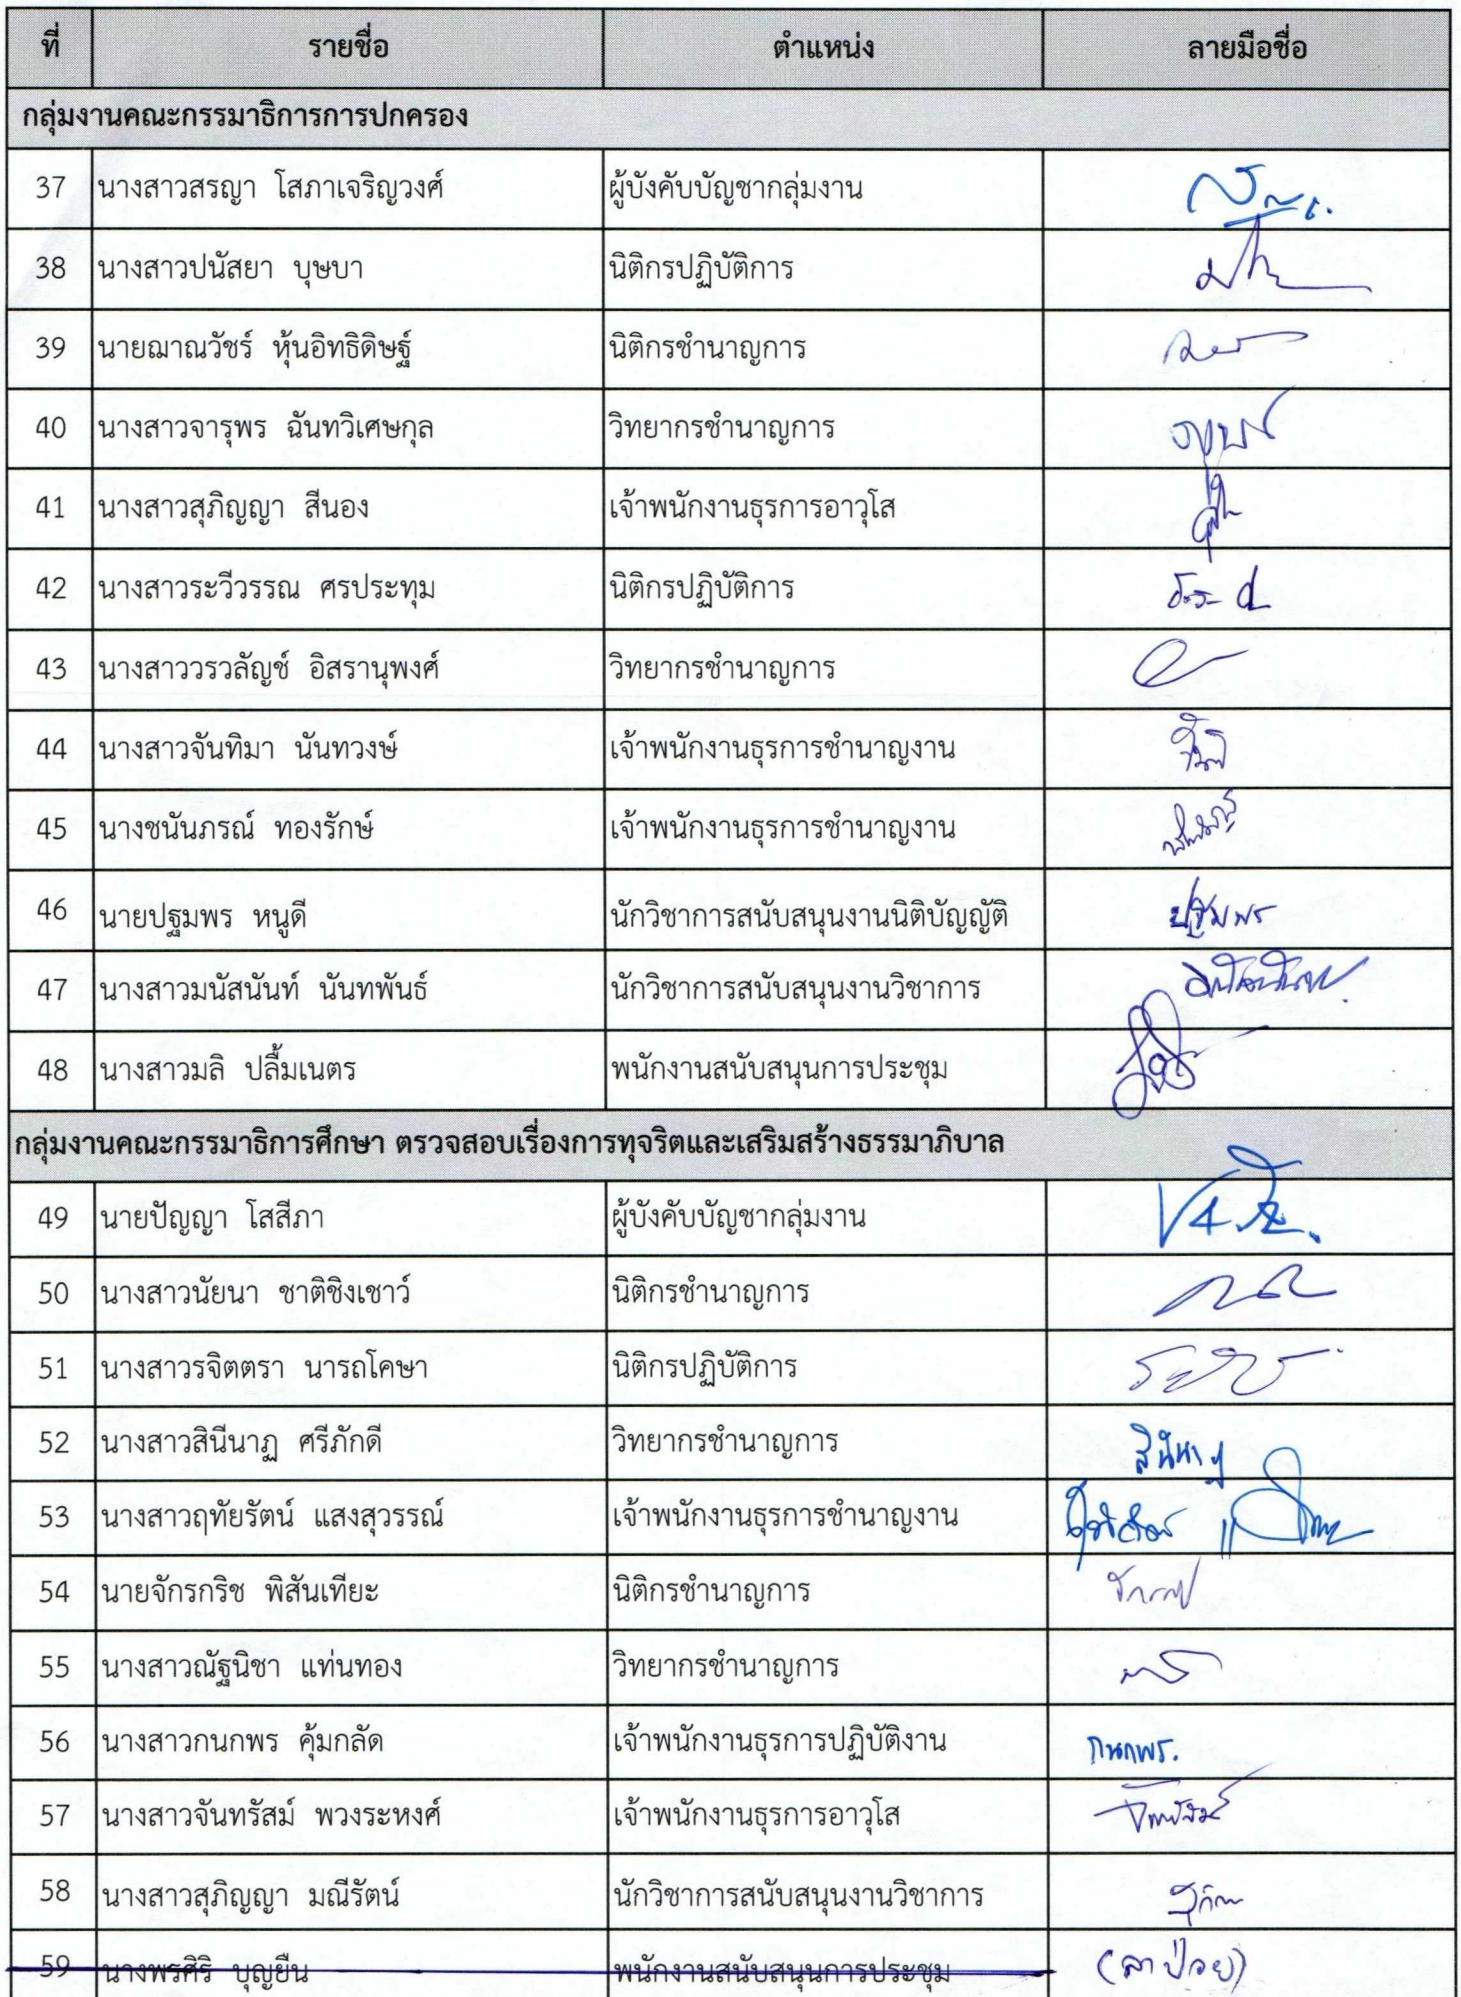 ที่ รายชื่อ ตำแหน่ง ลายมือชื่อ
กลุ่มงานคณะกรรมาธิการการปกครอง
37 นางสาวสรญา โสภาเจริญวงศ์ ผู้บังคับบัญชากลุ่มงาน
38 นางสาวปนัสยา บุษบา นิติกรปฏิบัติการ
39 นายฌาณวัชร์ หุ้นอิทธิดิษฐ์ นิติกรชำนาญการ
40 นางสาวจารุพร ฉันทวิเศษกุล วิทยากรชำนาญการ
41 นางสาวสุภิญญา สีนอง เจ้าพนักงานธุรการอาวุโส
42 นางสาวระวีวรรณ ศรประทุม นิติกรปฏิบัติการ
43 นางสาววรวลัญช์ อิสรานุพงศ์ วิทยากรชำนาญการ
44 นางสาวจันทิมา นันทวงษ์ เจ้าพนักงานธุรการชำนาญงาน
45 นางชนันภรณ์ ทองรักษ์ เจ้าพนักงานธุรการชำนาญงาน
46 นายปฐมพร หนูดี นักวิชาการสนับสนุนงานนิติบัญญัติ ปฐมพร
47 นางสาวมนัสนันท์ นันทพันธ์ นักวิชาการสนับสนุนงานวิชาการ
48 นางสาวมลิ ปลื้มเนตร พนักงานสนับสนุนการประชุม
กลุ่มงานคณะกรรมาธิการศึกษา ตรวจสอบเรื่องการทุจริตและเสริมสร้างธรรมาภิบาล
49 นายปัญญา โสสีภา ผู้บังคับบัญชากลุ่มงาน
50 นางสาวนัยนา ชาติชิงเชาว์ นิติกรชำนาญการ
51 นางสาวรจิตตรา นารถโคษา นิติกรปฏิบัติการ
52 นางสาวสินีนาฏ ศรีภักดี วิทยากรชำนาญการ สินีนาฏ
53 นางสาวฤทัยรัตน์ แสงสุวรรณ์ เจ้าพนักงานธุรการชำนาญงาน
54 นายจักรกริช พิสันเทียะ นิติกรชำนาญการ
55 นางสาวณัฐนิชา แท่นทอง วิทยากรชำนาญการ
56 นางสาวกนกพร คุ้มกลัด เจ้าพนักงานธุรการปฏิบัติงาน กนกพร.
57 นางสาวจันทรัสม์ พวงระหงศ์ เจ้าพนักงานธุรการอาวุโส
58 นางสาวสุภิญญา มณีรัตน์ นักวิชาการสนับสนุนงานวิชาการ
59 นางพรศิริ บุญยืน พนักงานสนับสนุนการประชุม (ลาป่วย)